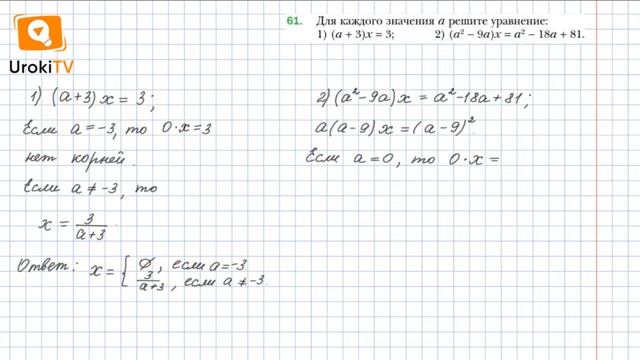 UrokiTV
61. Для каждого значения a решите уравнение:
1) (a + 3)x = 3; 2) (a² − 9a)x = a² − 18a + 81.
1) (a+3)x = 3;
Если a = -3, то 0·x = 3
нет корней.
Если a ≠ -3, то
x = 3/(a+3)
Ответ: x = { ∅, если a = -3
3/(a+3), если a ≠ -3.
2) (a²-9a)x = a²-18a+81;
a(a-9)x = (a-9)².
Если a = 0, то 0·x =